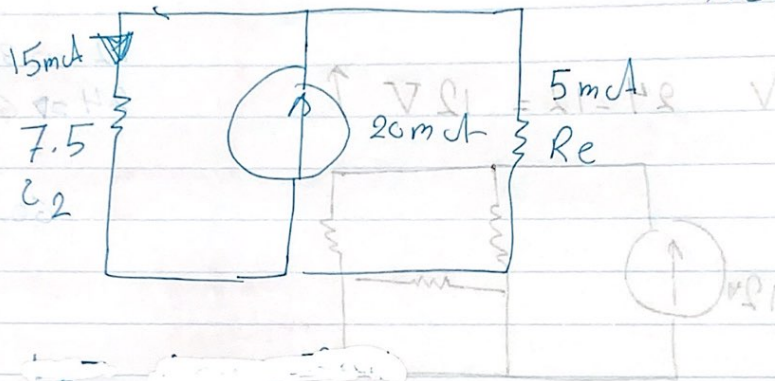 15mA
7.5
i2
20mA
5mA
Re